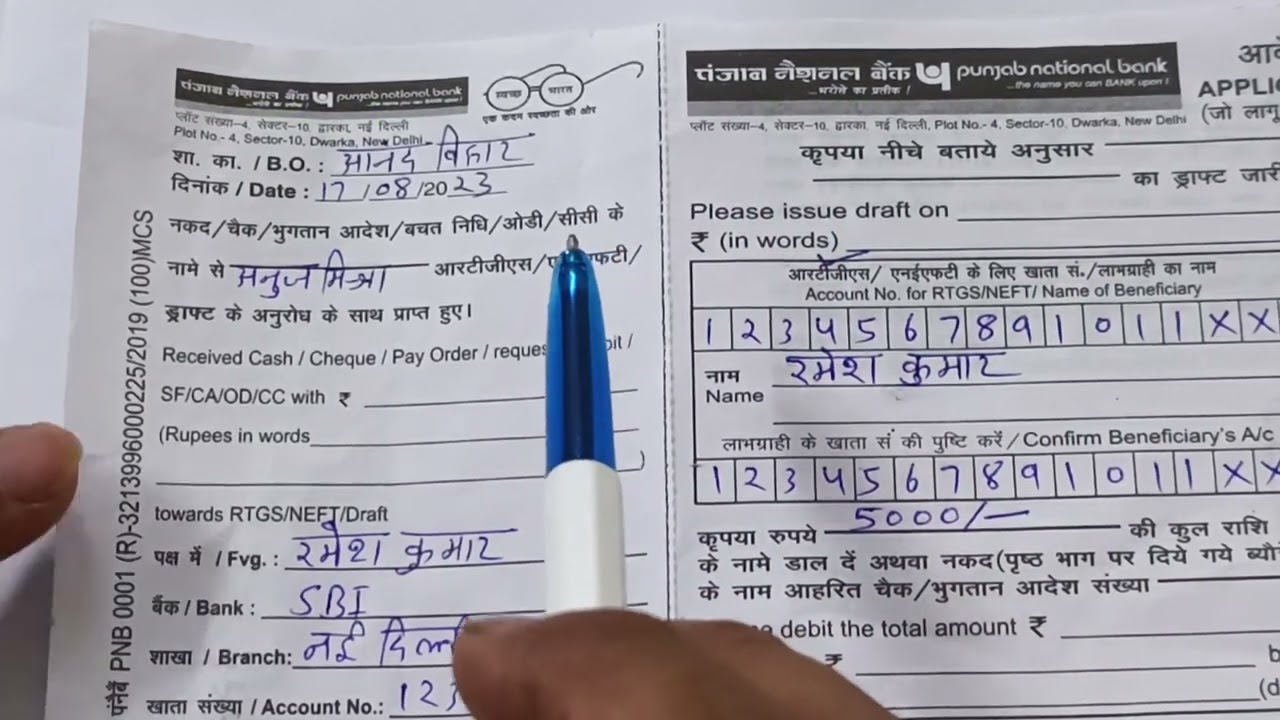 पंजाब नैशनल बैंक punjab national bank
...भरोसे का प्रतीक ! ...the name you can BANK upon !
स्वच्छ भारत
एक कदम स्वच्छता की ओर
प्लॉट संख्या–4, सेक्टर–10, द्वारका, नई दिल्ली
Plot No.- 4, Sector-10, Dwarka, New Delhi
शा. का. / B.O. : आनंद विहार
दिनांक / Date : 17/08/2023
नकद/चैक/भुगतान आदेश/बचत निधि/ओडी/सीसी के
नामे से मनुज मिश्रा आरटीजीएस/
ड्राफ्ट के अनुरोध के साथ प्राप्त हुए।
Received Cash / Cheque / Pay Order /
SF/CA/OD/CC with ₹
(Rupees in words
)
towards RTGS/NEFT/Draft
पक्ष में / Fvg. : रमेश कुमार
बैंक / Bank : SBI
शाखा / Branch: नई
खाता संख्या / Account No.: 123
पंनैबैं PNB 0001 (R)-3213996000225/2019 (100)MCS
पंजाब नैशनल बैंक punjab national bank
...भरोसे का प्रतीक ! ...the name you can BANK upon !
प्लॉट संख्या–4, सेक्टर–10, द्वारका, नई दिल्ली, Plot No.- 4, Sector-10, Dwarka, New Delhi
(जो लागू
कृपया नीचे बताये अनुसार
का ड्राफ्ट जारी
Please issue draft on
₹ (in words)
आरटीजीएस/ एनईएफटी के लिए खाता सं./लाभग्राही का नाम
Account No. for RTGS/NEFT/ Name of Beneficiary
1 2 3 4 5 6 7 8 9 1 0 1 1 X X
नाम रमेश कुमार
Name
लाभग्राही के खाता सं की पुष्टि करें/Confirm Beneficiary's A/c
1 2 3 4 5 6 7 8 9 1 0 1 1 X X
कृपया रुपये 5000/– की कुल राशि
के नामे डाल दें अथवा नकद(पृष्ठ भाग पर दिये गये
के नाम आहरित चैक/भुगतान आदेश संख्या
debit the total amount ₹
₹